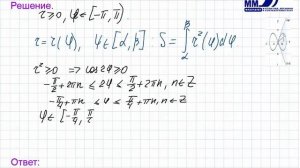 Решение.
τ ≥ 0, φ ∈ [-π, π).
τ = τ(φ), φ ∈ [α, β] S = ∫ τ²(φ)dφ
β
α
τ² ≥ 0 => cos 2φ ≥ 0
-π/2 + 2πn ≤ 2φ ≤ π/2 + 2πn, n ∈ Z
-π/4 + πn ≤ φ ≤ π/4 + πn, n ∈ Z
φ ∈ [-π/4, π/
Ответ: